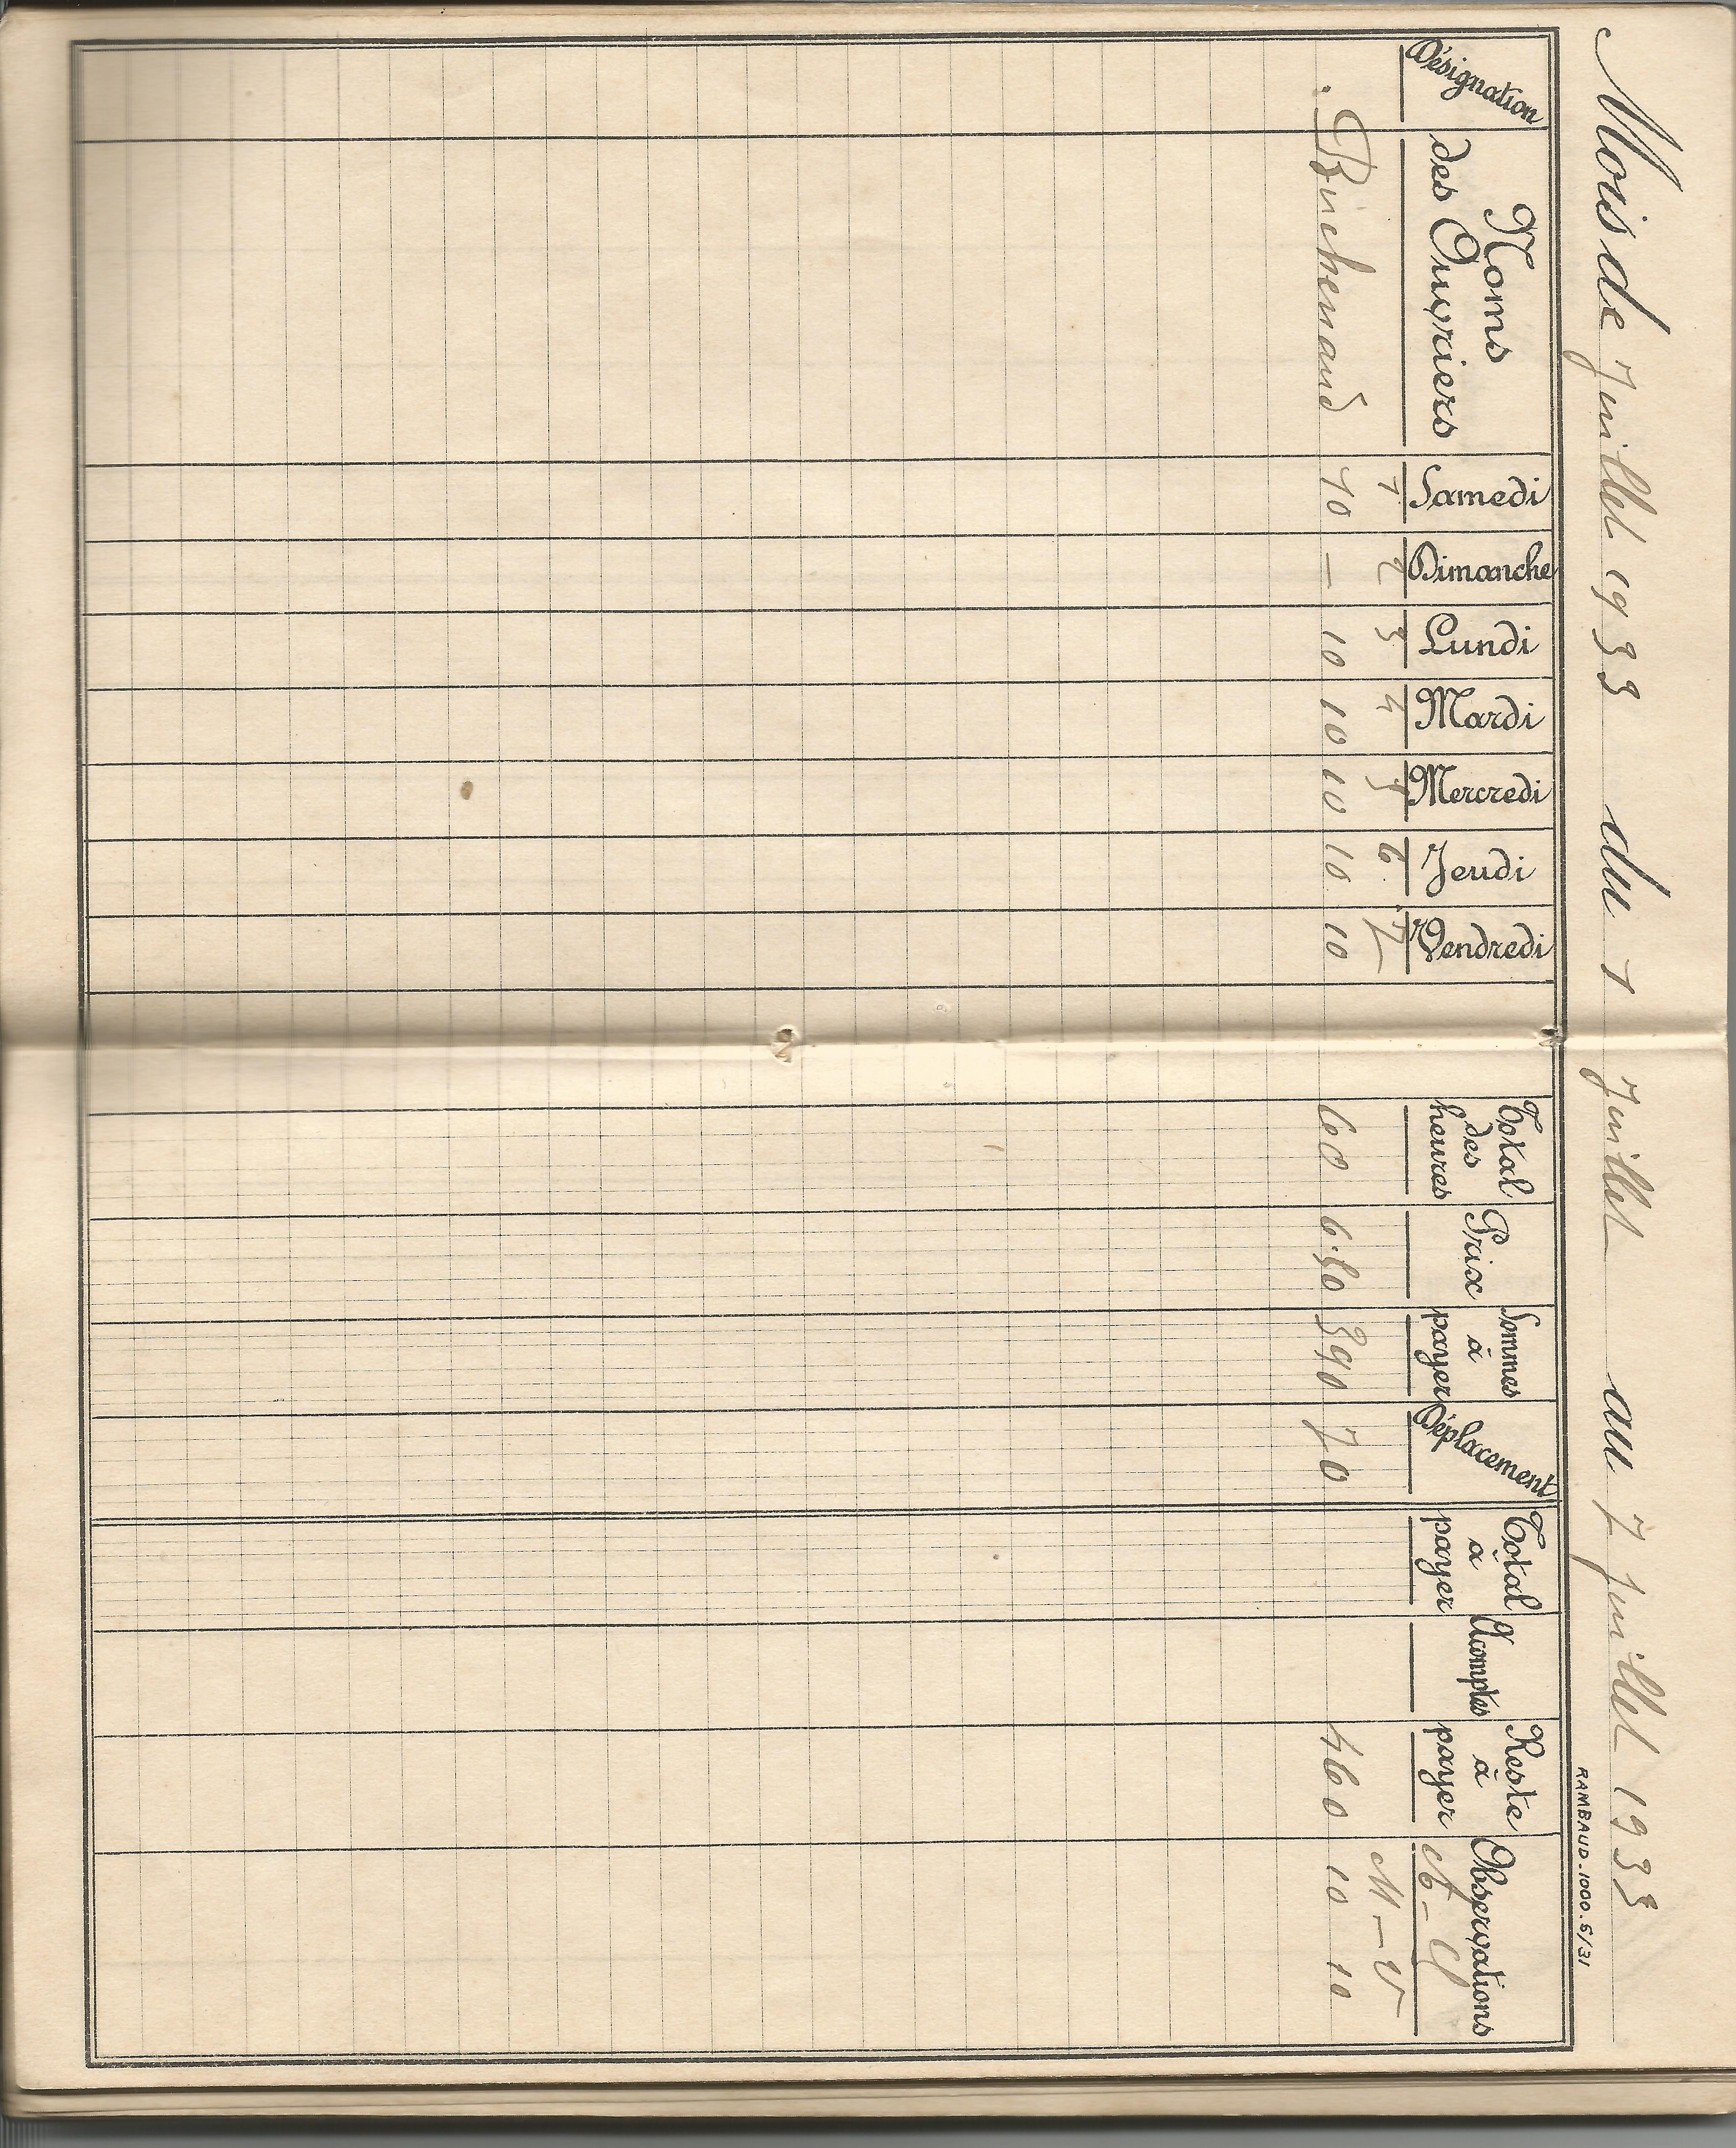 Mois de Juillet 1933 du 1 Juillet au 7 Juillet 1933
RAMBAUD_1000.5/31
Désignation Noms des Ouvriers Samedi Dimanche Lundi Mardi Mercredi Jeudi Vendredi Total des heures Prix Sommes à payer Déplacement Total à payer Acomptes Reste à payer Observations
1 2 3 4 5 6 7 M - V
10 — 10 10 10 10 10 60 6.50 390 70 460 10 10